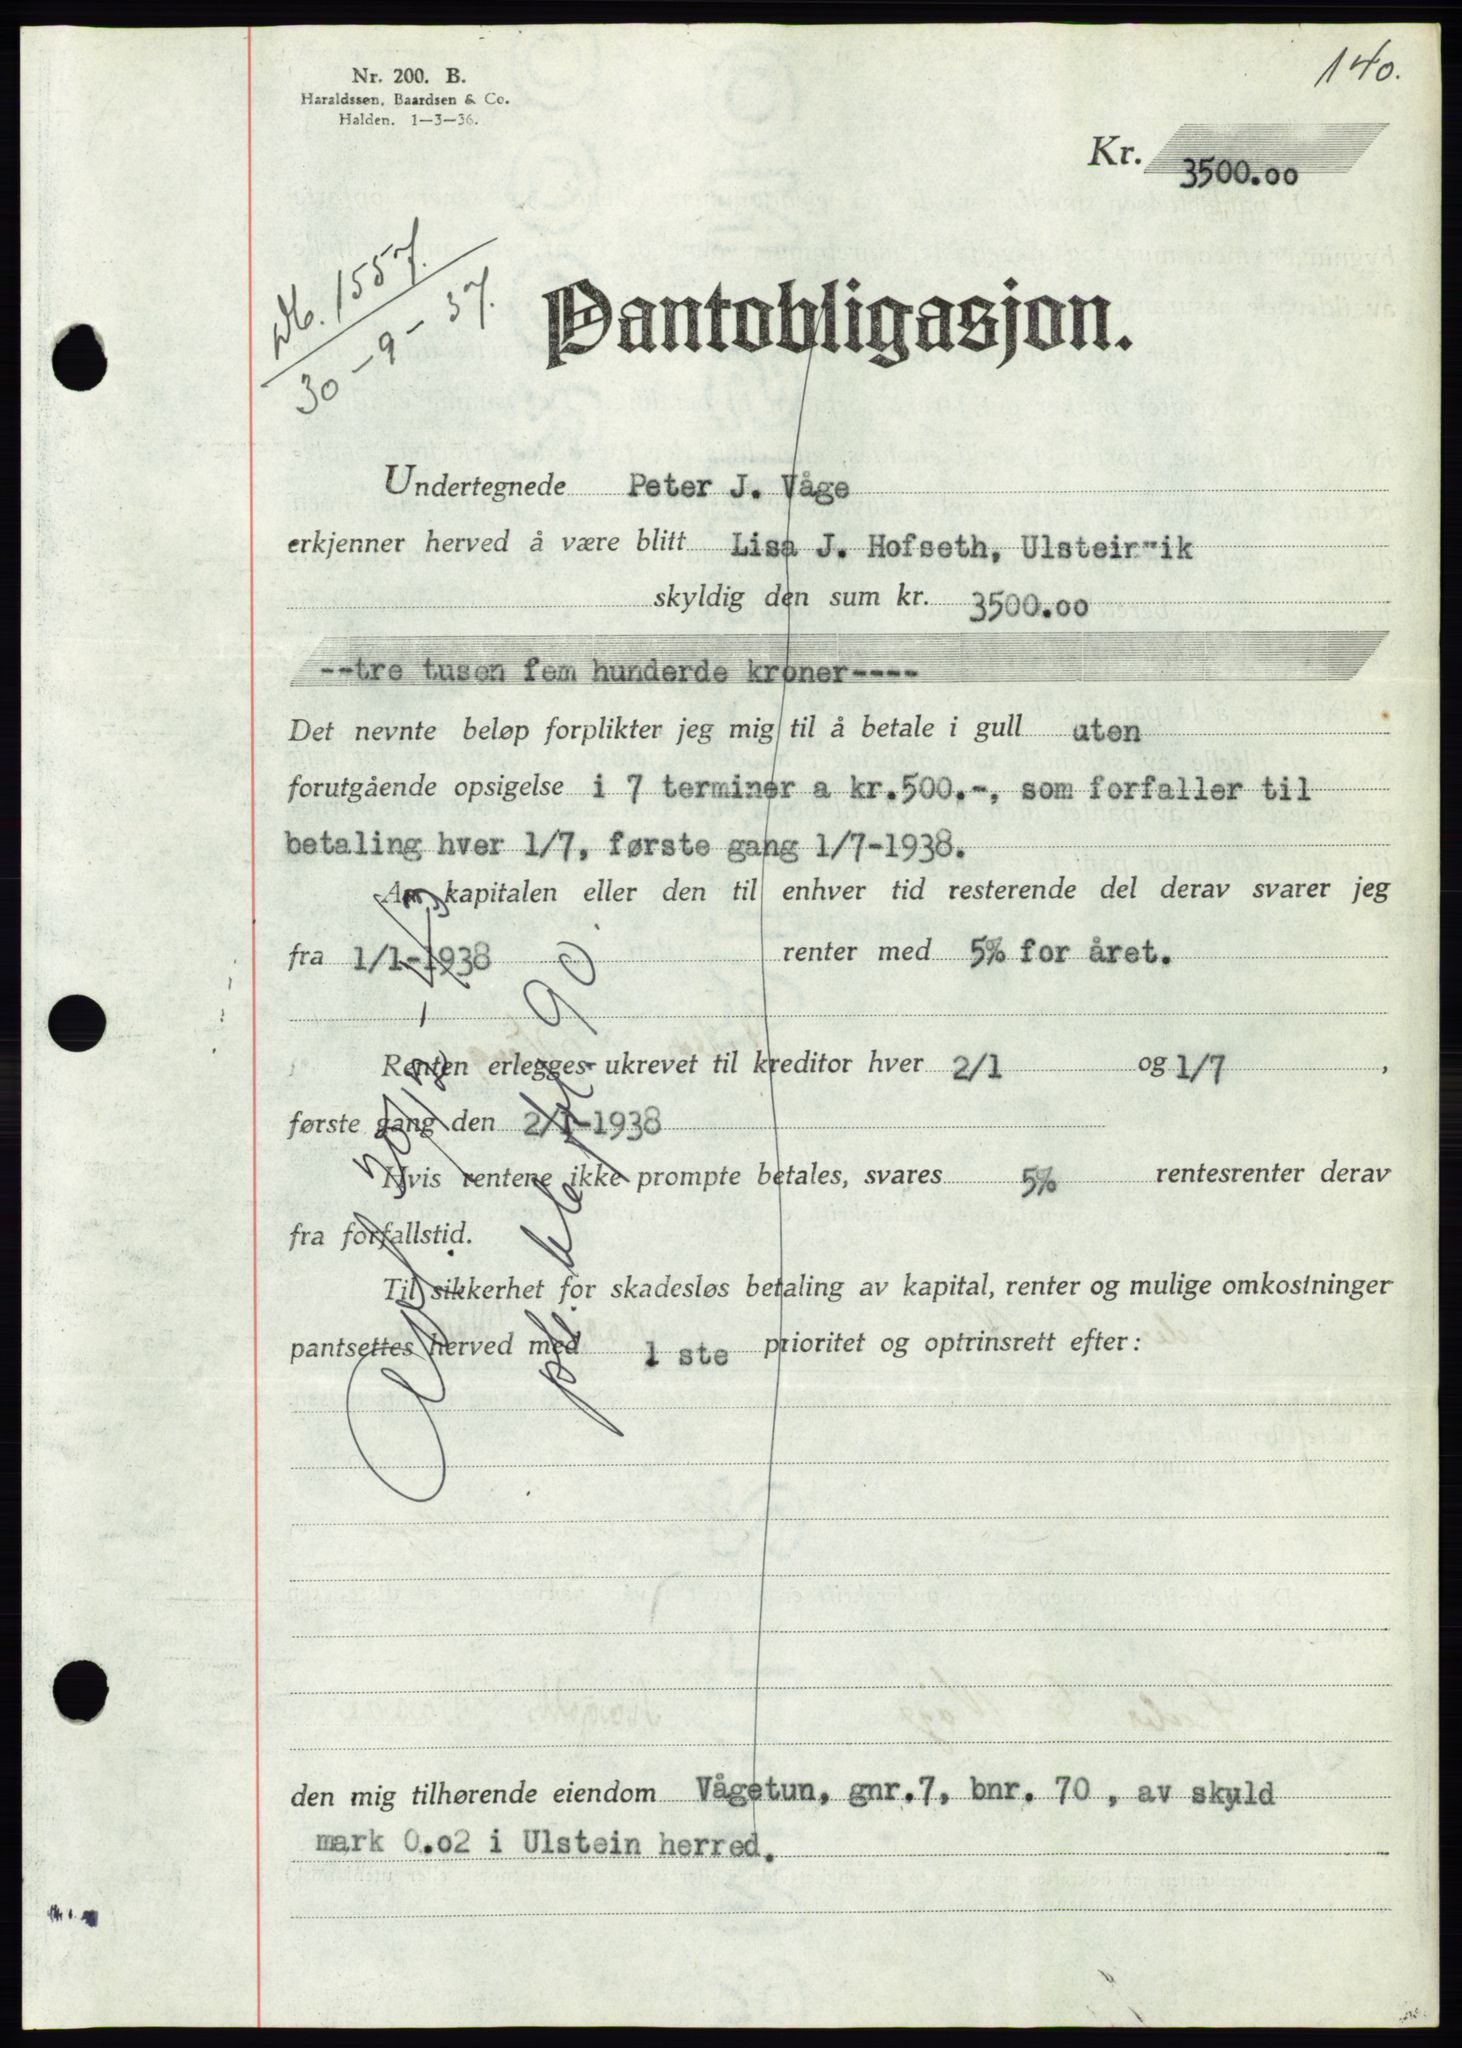 140.
Nr. 200. B.
Haraldssen, Baardsen & Co.
Halden. 1—3—36.
Kr. 3500.00
1557.
30-9-37.
Pantobligasjon.
Undertegnede Peter J. Våge
erkjenner herved å være blitt Lisa J. Hofseth, Ulsteinvik
skyldig den sum kr. 3500.00
--tre tusen fem hunderde kroner----
Det nevnte beløp forplikter jeg mig til å betale i gull uten
forutgående opsigelse i 7 terminer a kr.500.-, som forfaller til
betaling hver 1/7, første gang 1/7-1938.
Av kapitalen eller den til enhver tid resterende del derav svarer jeg
fra 1/1-1938 renter med 5% for året.
Renten erlegges ukrevet til kreditor hver 2/1 og 1/7 ,
første gang den 2/1-1938
Hvis rentene ikke prompte betales, svares 5% rentesrenter derav
fra forfallstid.
Til sikkerhet for skadesløs betaling av kapital, renter og mulige omkostninger
pantsettes herved med 1 ste prioritet og optrinsrett efter:
den mig tilhørende eiendom Vågetun, gnr.7, bnr. 70 , av skyld
mark 0.02 i Ulstein herred.